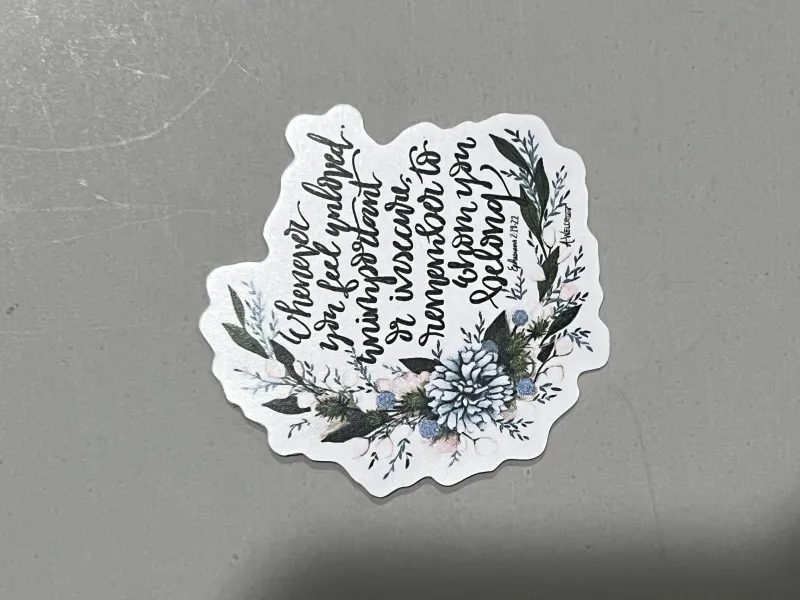 Whenever
you feel unloved,
unimportant
or insecure,
remember to
whom you
belong
Ephesians 2:19-22